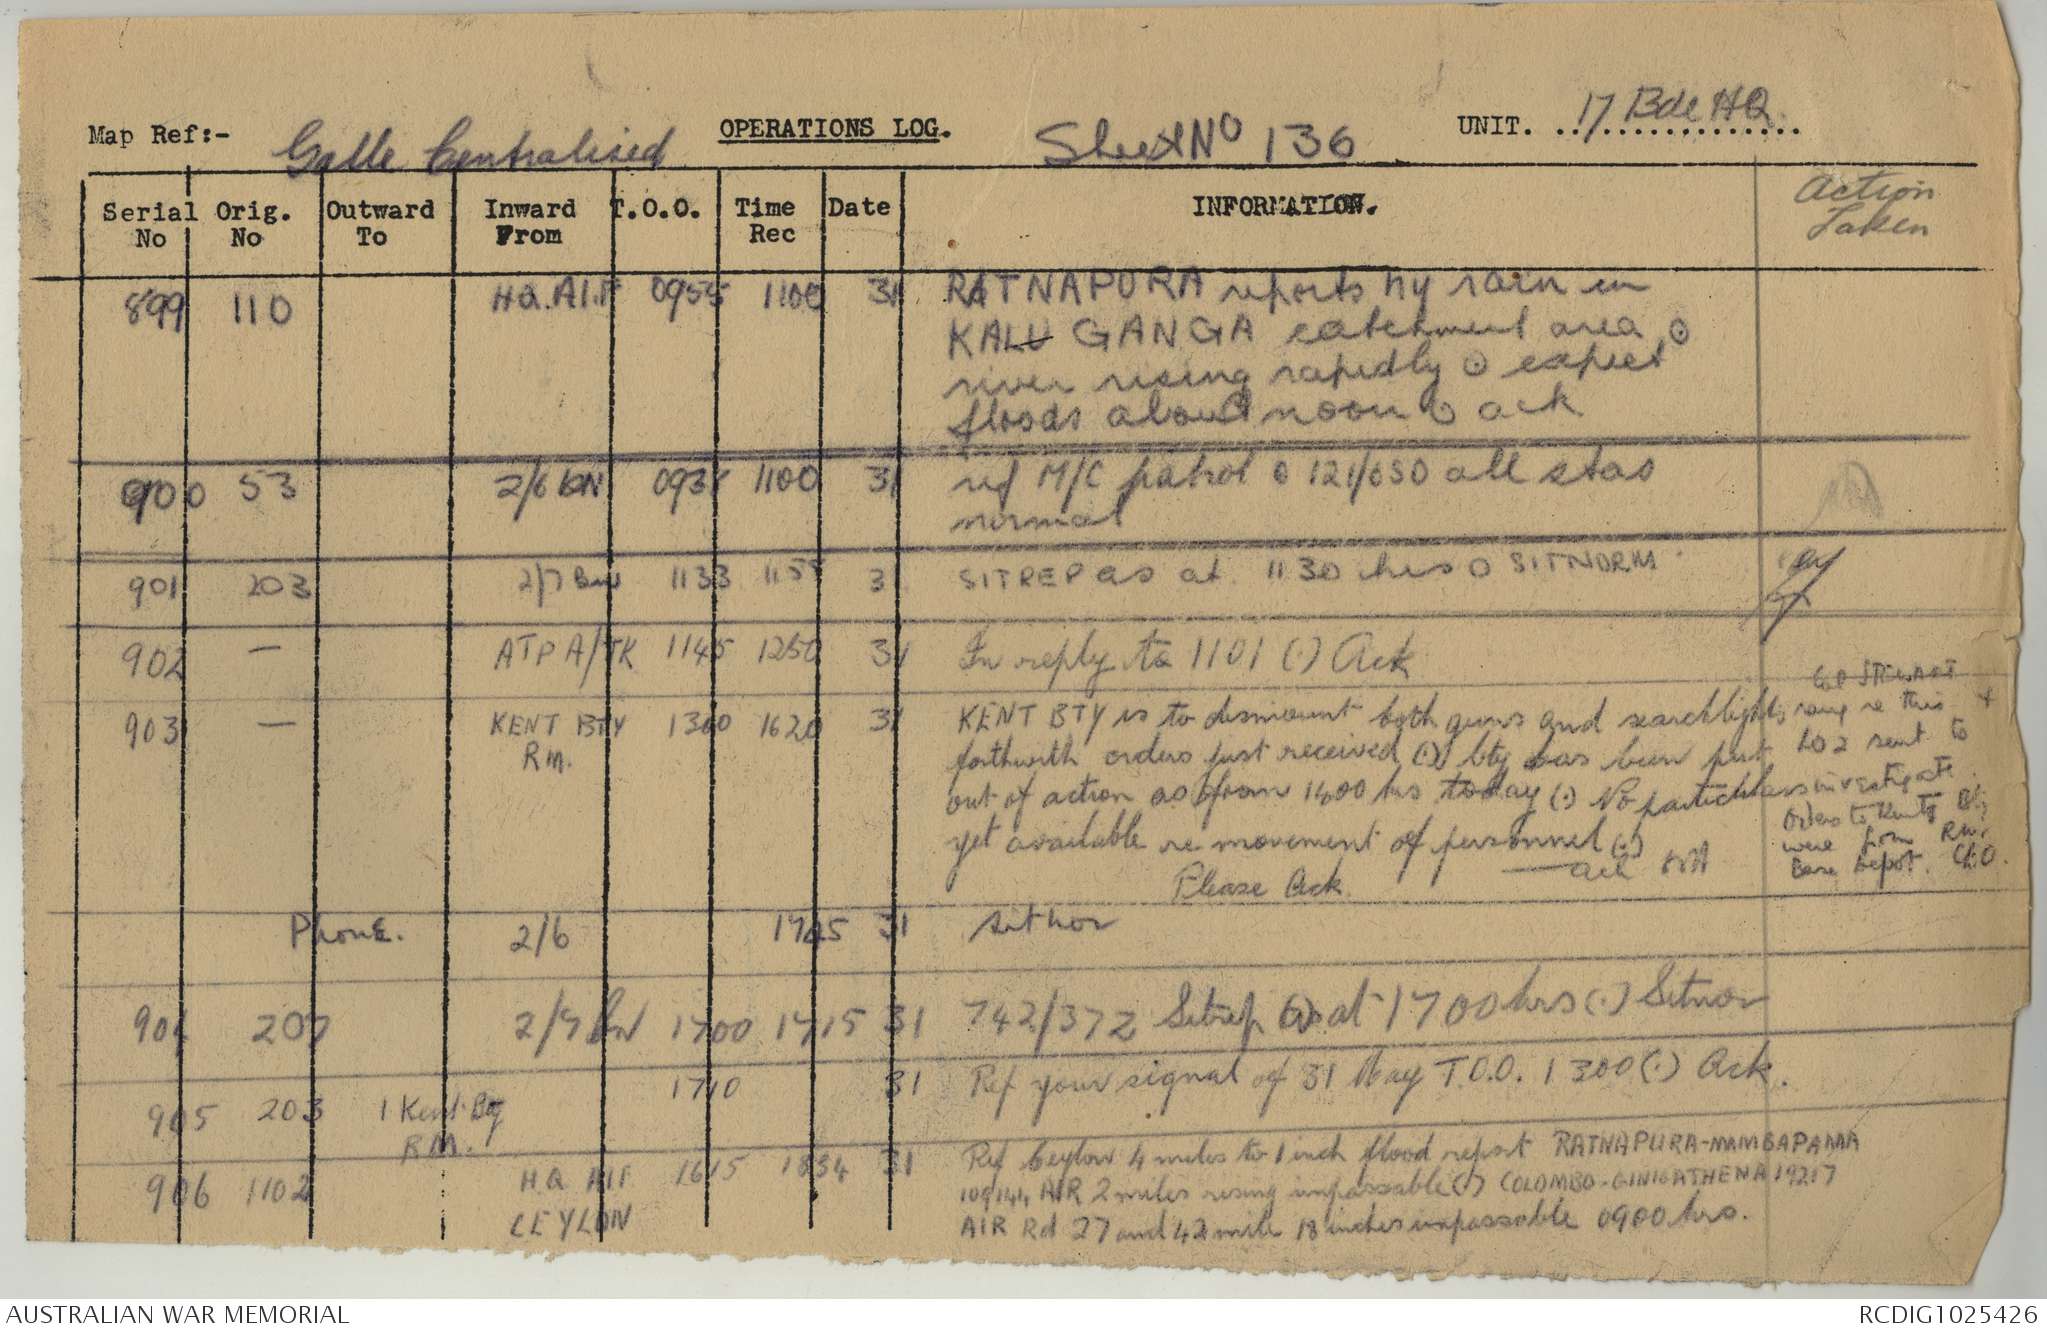 Map Ref:- Galle Centralised OPERATIONS LOG. Sheet No 136 UNIT. 17 Bde HQ.
Serial No Orig. No Outward To Inward From T.O.O. Time Rec Date INFORMATION. Action Taken
899 110 HQ. AIF 0955 1100 31 RATNAPURA reports hy rain in
KALU GANGA catchment area ⊙
river rising rapidly ⊙ expect
floods about noon ⊙ ack
900 53 2/6 BN 1100 31 ref M/C patrol ⊙ 121/050 all stas
normal
901 203 2/7 Bn 1133 1155 31 SITREP as at 1130 hrs O SITNORM
902 — ATP A/TK 1145 1250 31 In reply to 1101 (.) Ack
903 — KENT BTY 1300 1620 31 KENT BTY is to dismount both guns and searchlights
RM. forthwith orders just received (.) bty has been put
out of action as from 1400 hrs today (.) No particulars
yet available re movement of personnel (.)
Please Ack. — ack
rang re this +
LO2 sent to
investigate.
Orders to Kent Bty
were from RM.
Base Depot. C.O.
Phone. 2/6 1725 31 sitnor
904 207 2/7 BN 1700 1715 31 742/372 Sitrep as at 1700 hrs (.) Sitnor
905 203 1 Kent Bty 1710 31 Ref your signal of 31 May T.O.O. 1300 (.) Ack.
RM.
906 1102 HQ AIF 1615 1834 31 Ref Ceylon 4 miles to 1 inch flood report RATNAPURA-
CEYLON AIR 2 miles rising impassable (.) COLOMBO-GINIGATHENA 19217
AIR Rd 27 and 42 mile 18 inches impassable 0900 hrs.
AUSTRALIAN WAR MEMORIAL RCDIG1025426